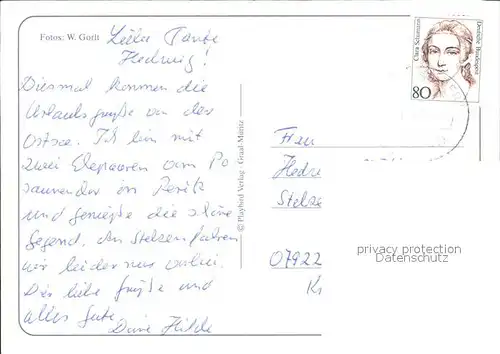 Fotos: W. Gorlt
Liebe Tante
Hedwig!
Diesmal kommen die
Urlaubsgrüße von der
Ostsee. Ich bin mit
zwei Ehepaaren vom Po
saunenchor in
und genieße die schöne
Gegend. An Stelzen fahren
wir leider nur vorbei.
Dir liebe Grüße und
alles Gute
Deine Hilde
© Playbird Verlag · Graal-Müritz
Clara Schumann
Deutsche Bundespost
80
Frau
Hedw
Stelze
07922
privacy protection
Datenschutz